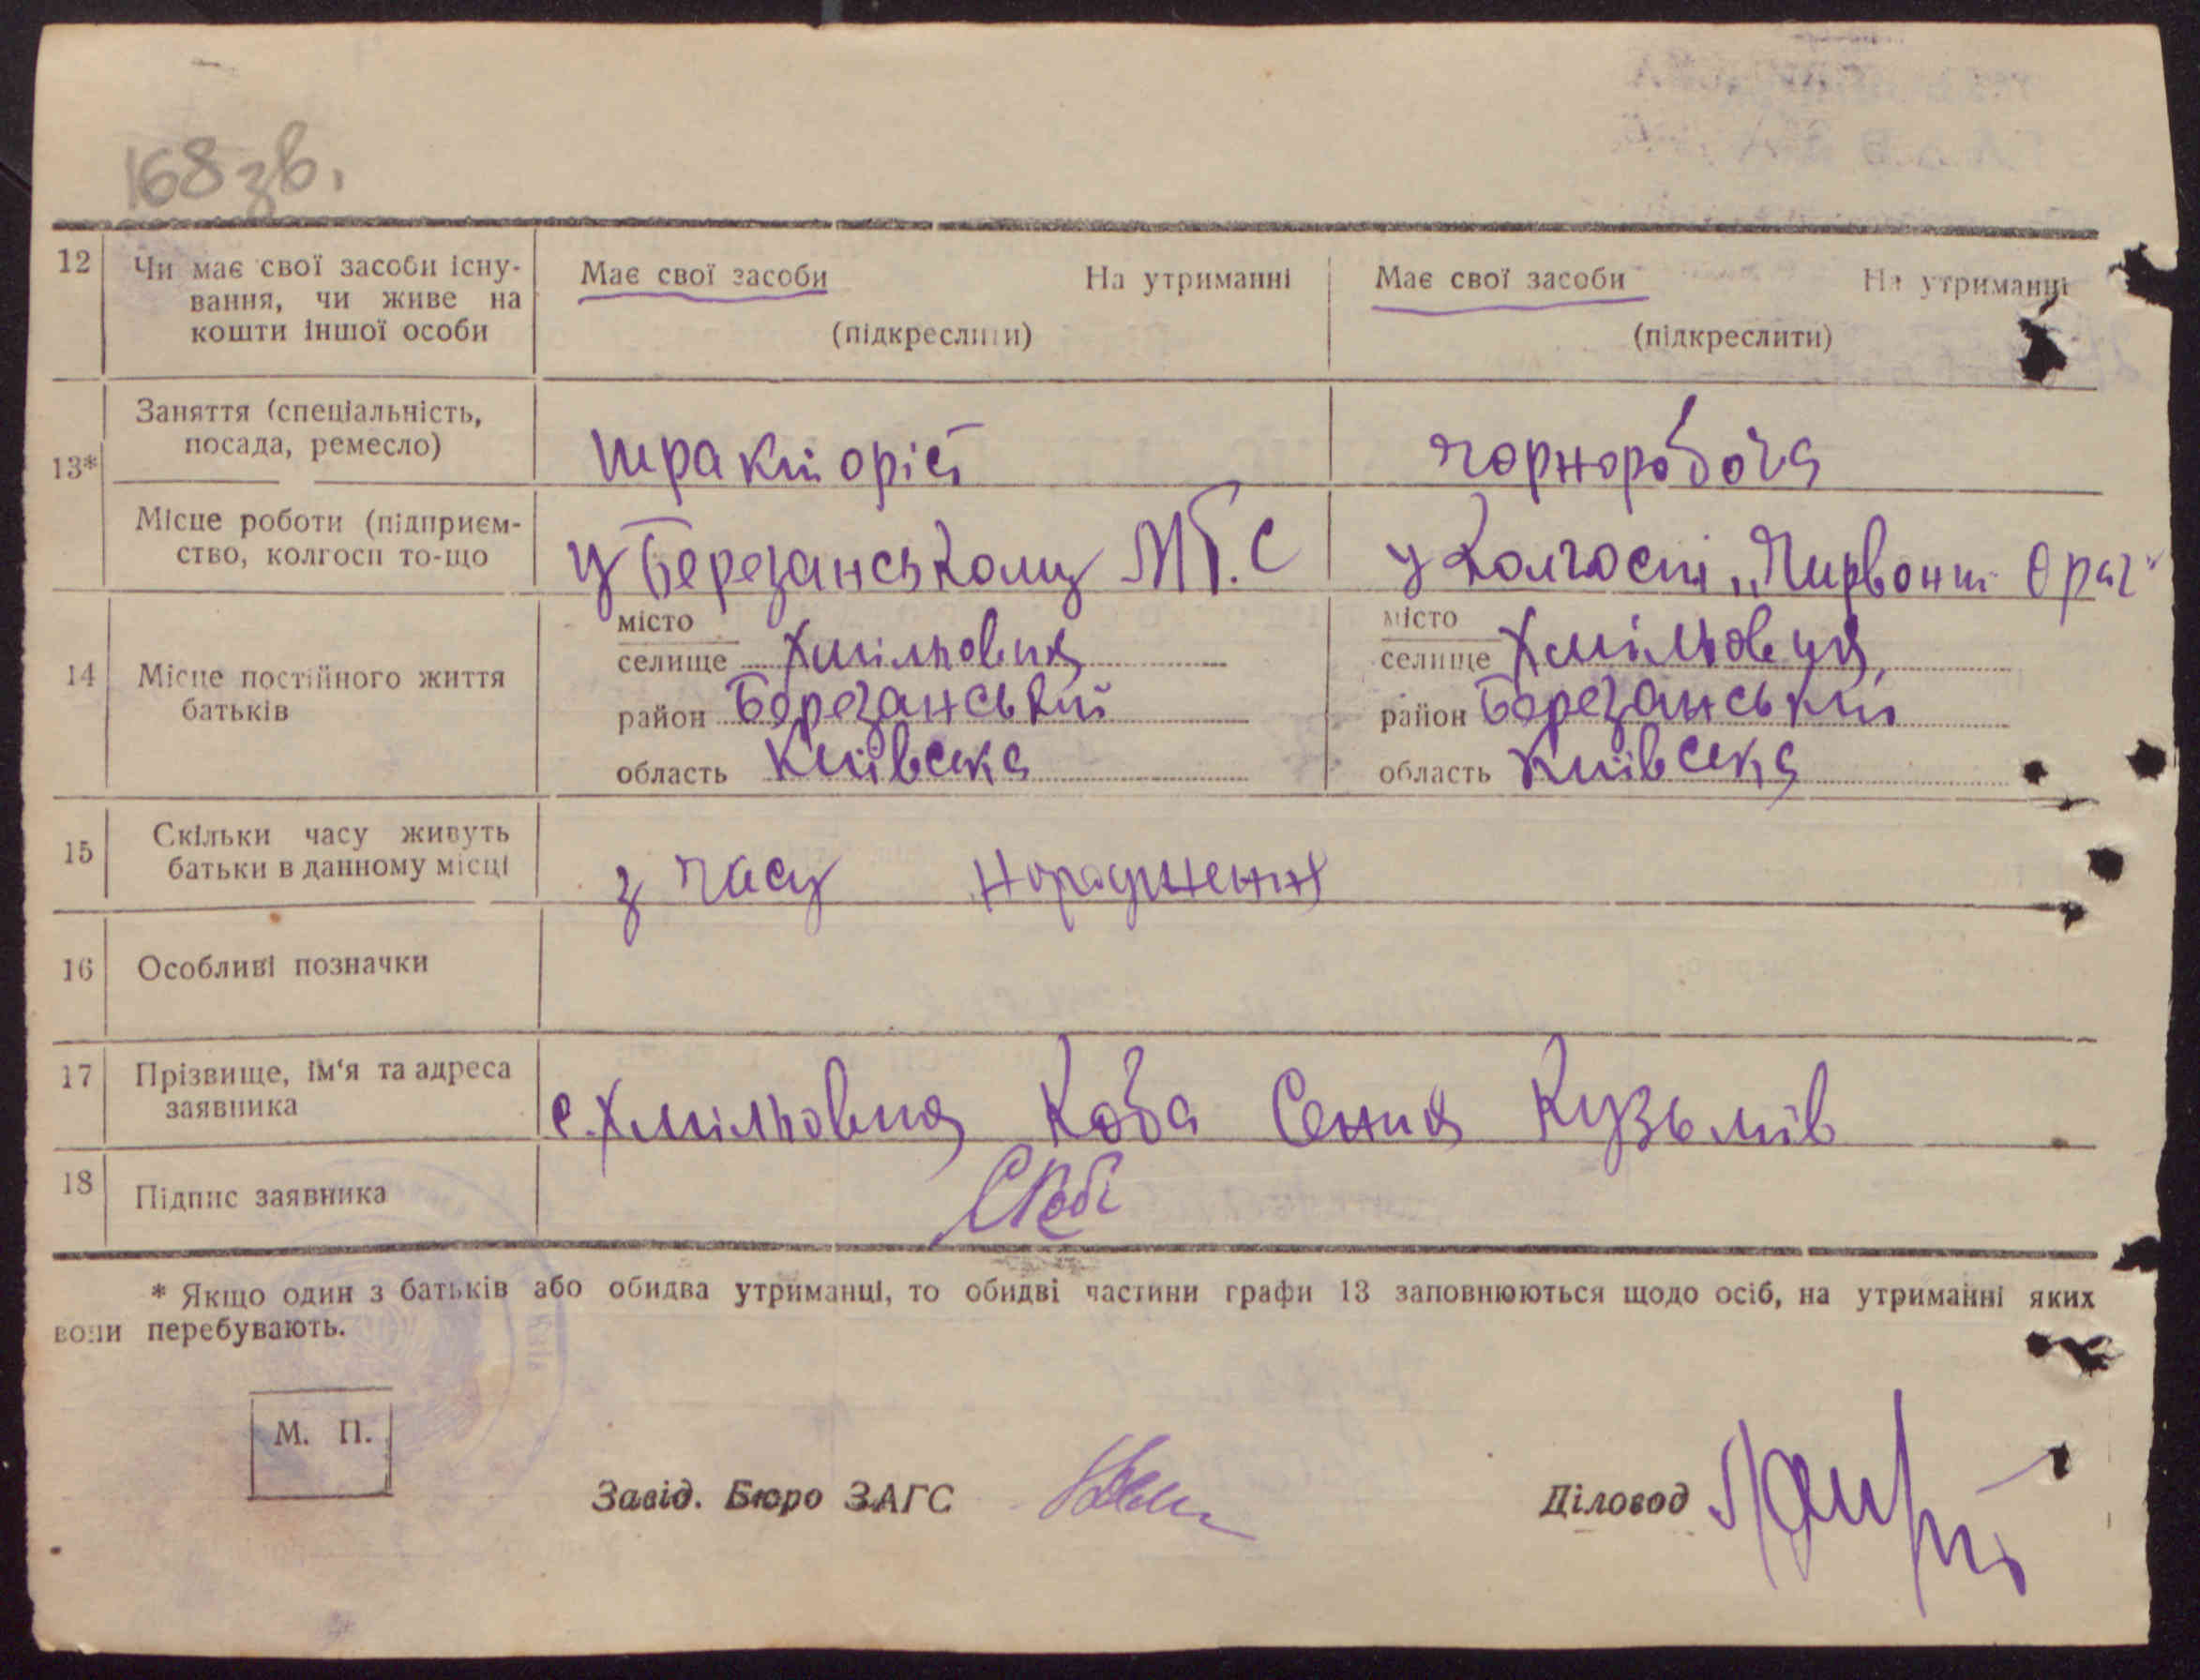 168 зв.
12 Чи має свої засоби існу-
вання, чи живе на
кошти іншої особи
Має свої засоби На утриманні
(підкреслити)
Має свої засоби На утриманні
(підкреслити)
13*
Заняття (спеціальність,
посада, ремесло)
тракторіст
чорноробоча
Місце роботи (підприєм-
ство, колгосп то-що
у Березанському М.Т.С
у Колгоспі „Чирвоний Орач“
14 Місце постійного життя
батьків
місто
селище Хмільовик
район Березанський
область Київська
місто
селище Хмільовик
район Березанський
область Київська
15 Скільки часу живуть
батьки в данному місці
з часу народження
16 Особливі позначки
17 Прізвище, ім'я та адреса
заявника
с. Хмільовик Коба Кузьмів
18 Підпис заявника
* Якщо один з батьків або обидва утриманці, то обидві частини графи 13 заповнюються щодо осіб, на утриманні яких
вони перебувають.
М. П.
Завід. Бюро ЗАГС
Діловод